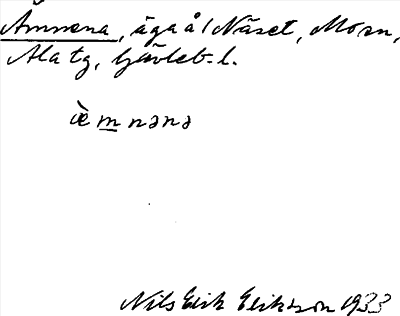 Åmnena, äga å / Näset, Mo sn,
Ala tg, Gävleb. l.
æ̀ m nənə
Nils Erik Eriksson 1933